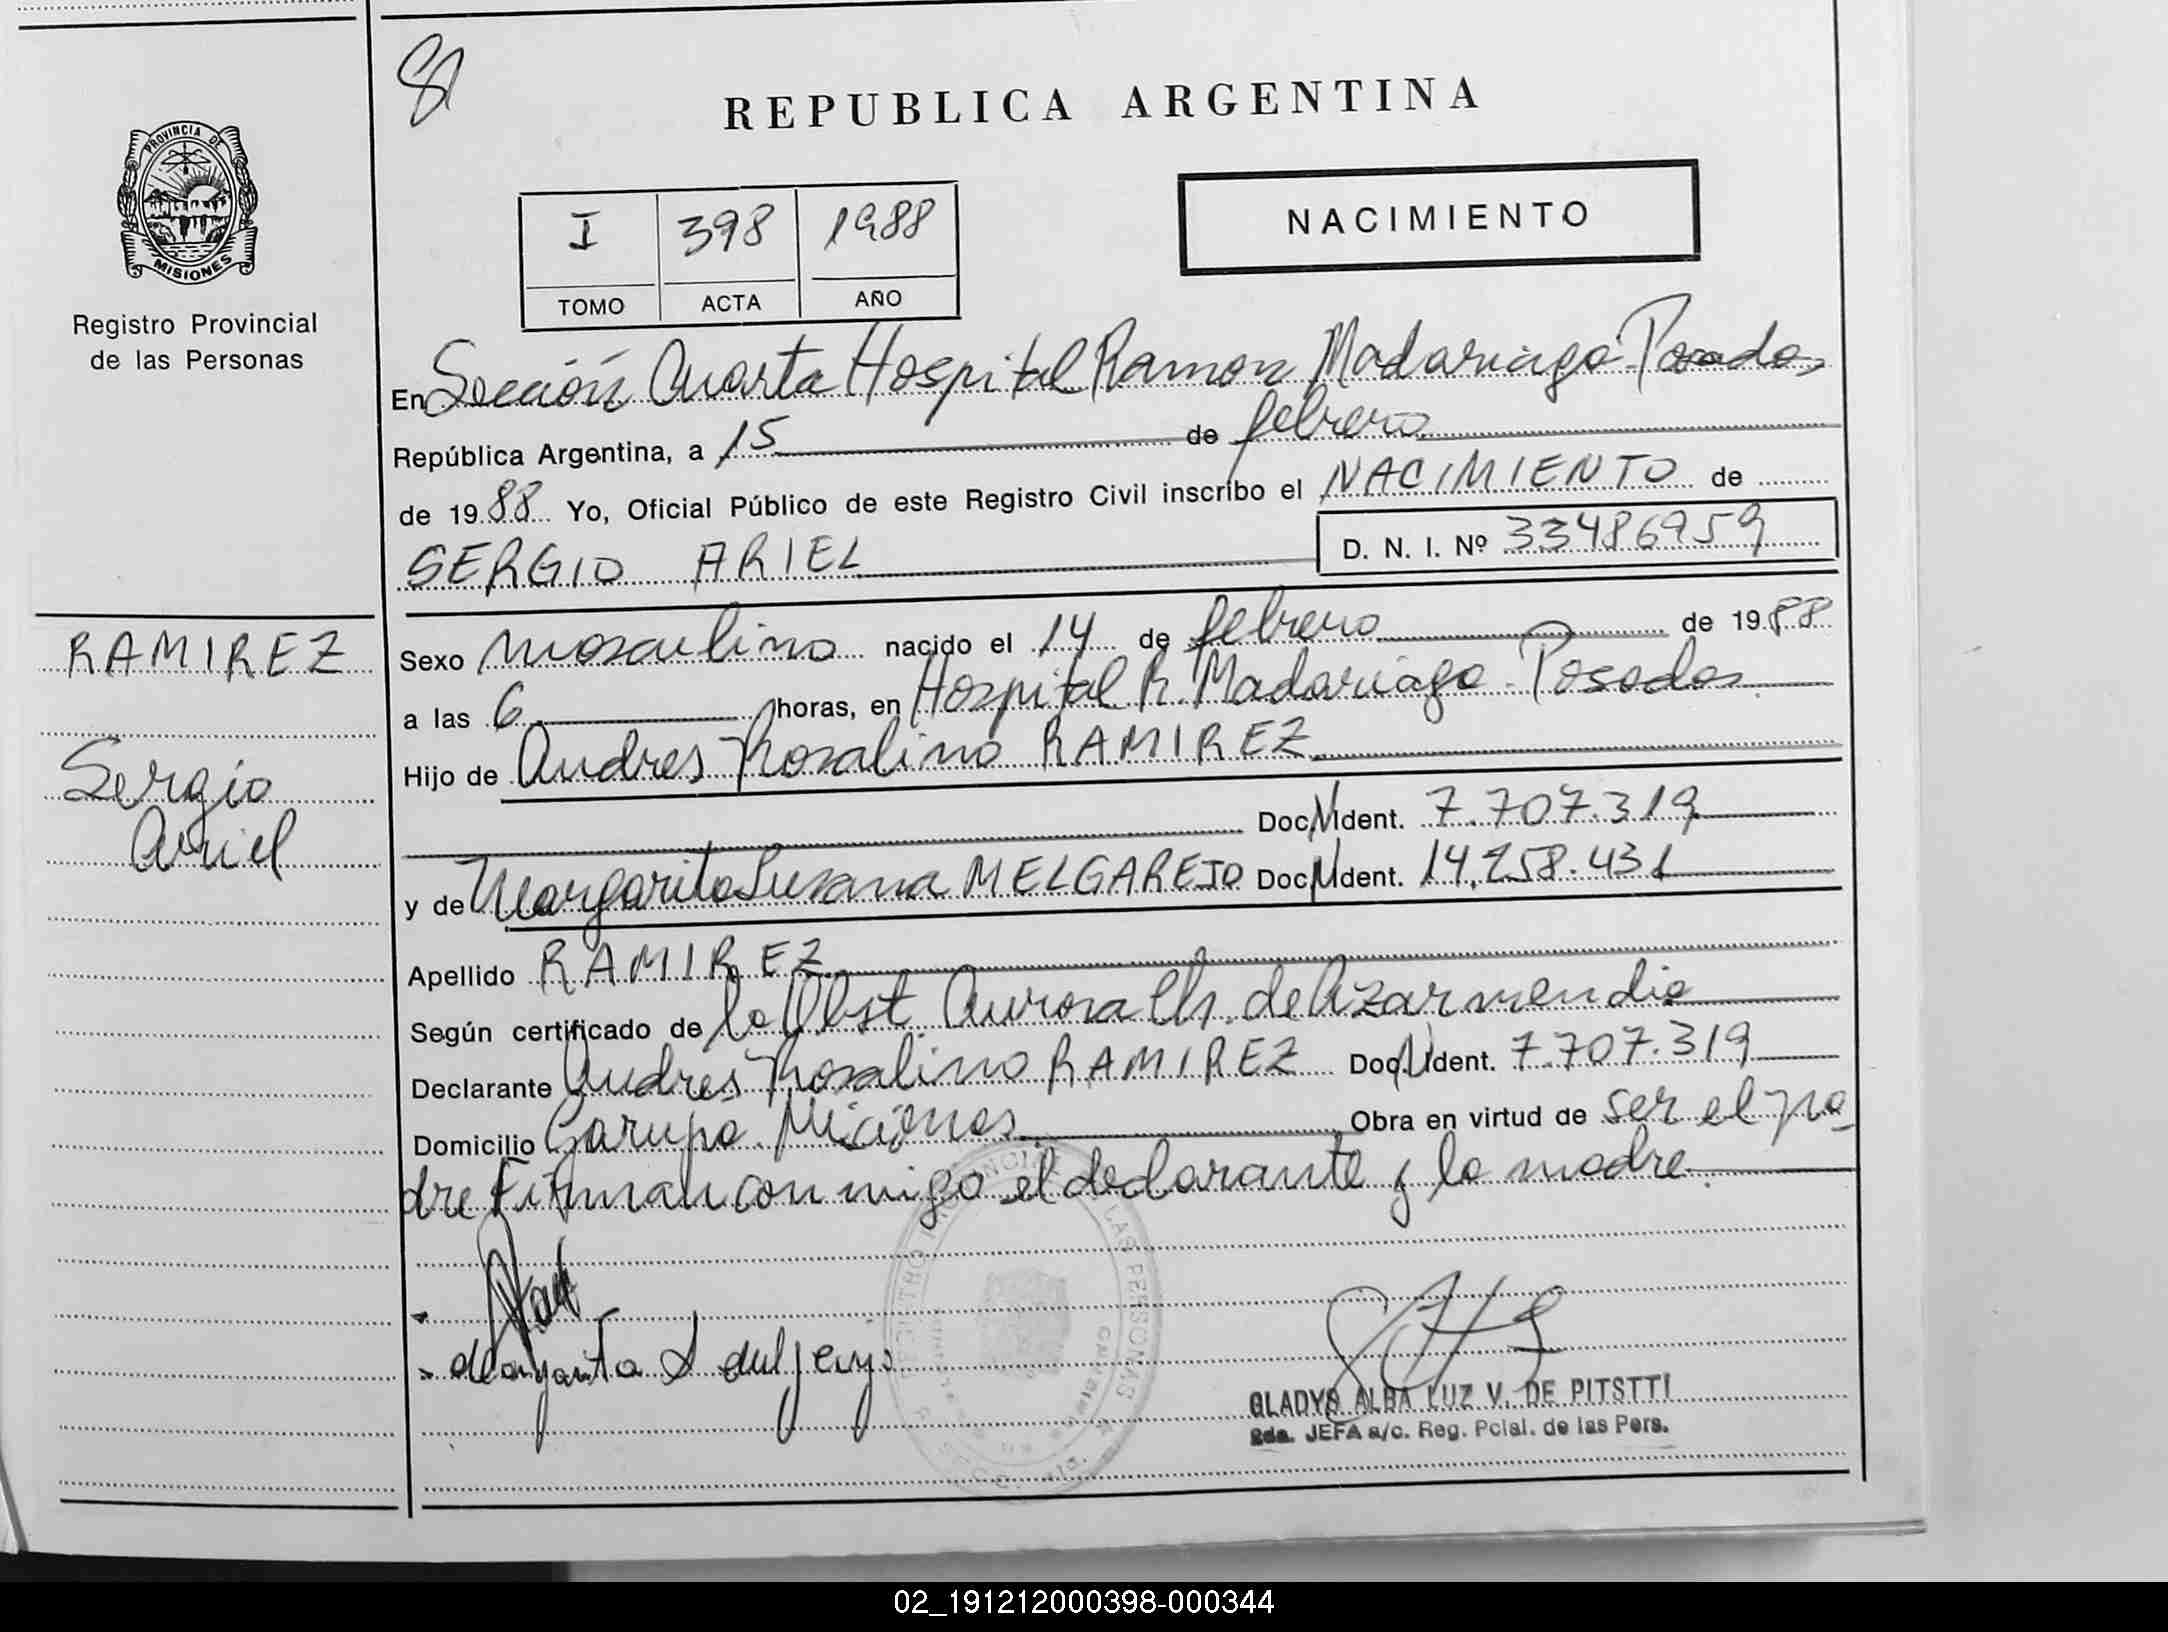 81
REPUBLICA ARGENTINA
PROVINCIA DE
MISIONES
Registro Provincial
de las Personas
I 398 1988
TOMO ACTA AÑO
NACIMIENTO
En Sección Cuarta Hospital Ramon Madariaga-Posadas
República Argentina, a 15 de febrero
de 1988 Yo, Oficial Público de este Registro Civil inscribo el NACIMIENTO de
SERGIO ARIEL D. N. I. Nº 33486959
RAMIREZ
Sergio
Ariel
Sexo masculino nacido el 14 de febrero de 1988
a las 6 horas, en Hospital R. Madariaga-Posadas
Hijo de Andres Rosalino RAMIREZ
Doc. N Ident. 7.707.319
y de Margarita Susana MELGAREJO Doc. N Ident. 14.258.431
Apellido RAMIREZ
Según certificado de la Obst. Aurora Ch. de Azarmendia
Declarante Andres Rosalino RAMIREZ Doc. N Ident. 7.707.319
Domicilio Garupa. Misiones Obra en virtud de ser el pa
dre Firman conmigo el declarante y la madre.
GLADYS ALBA LUZ V. DE PITSTTI
2da. JEFA a/c. Reg. Pcial. de las Pers.
02_191212000398-000344